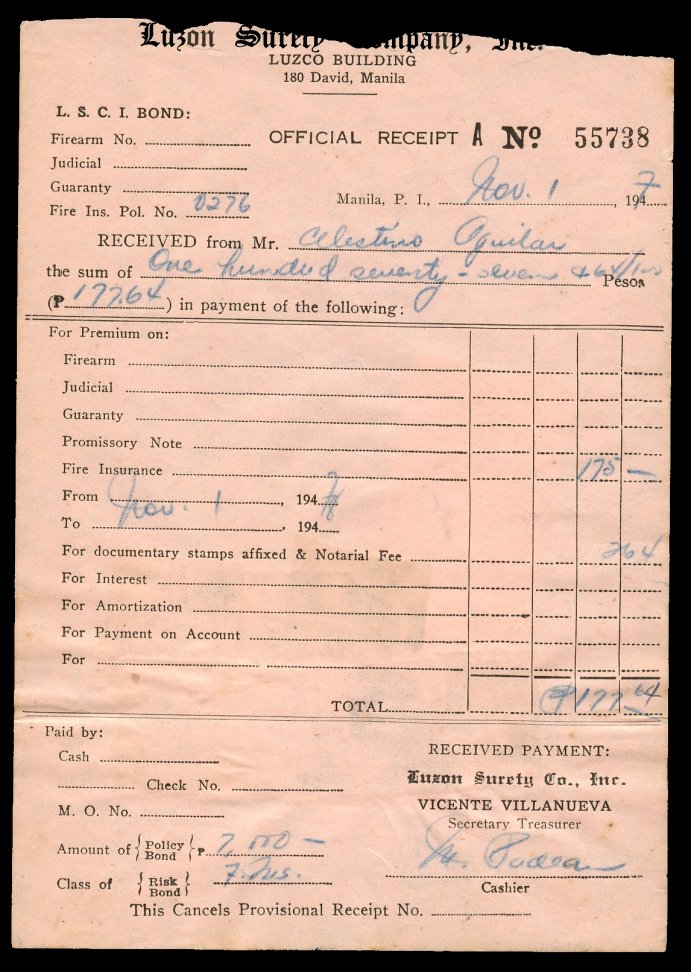 Luzon Surety Company, Inc.
LUZCO BUILDING
180 David, Manila
L. S. C. I. BOND:
Firearm No.
OFFICIAL RECEIPT A Nº 55738
Judicial
Guaranty
Manila, P. I., Nov. 1, 1947
Fire Ins. Pol. No. 0276
RECEIVED from Mr. Celestino Aguilar
the sum of One hundred seventy-seven & 64/100 Pesos
(₱ 177.64) in payment of the following:
For Premium on:
Firearm
Judicial
Guaranty
Promissory Note
Fire Insurance 175 —
From Nov. 1, 194
To , 194
For documentary stamps affixed & Notarial Fee 264
For Interest
For Amortization
For Payment on Account
For
TOTAL ₱177 64
Paid by:
RECEIVED PAYMENT:
Cash
Luzon Surety Co., Inc.
Check No.
VICENTE VILLANUEVA
M. O. No.
Secretary Treasurer
Amount of {Policy Bond} ₱ 7,000 —
Class of {Risk Bond} F. Ins.
Cashier
This Cancels Provisional Receipt No.